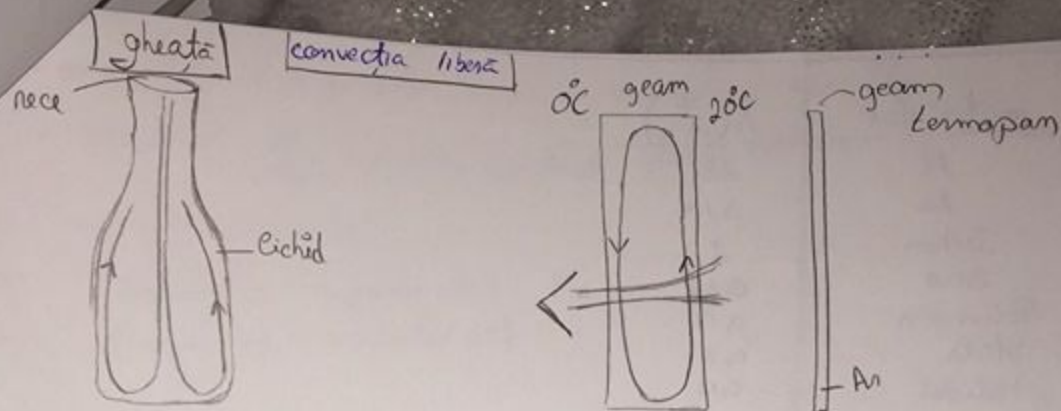 gheață
convecția liberă
rece
lichid
0°C
geam
20°C
geam
termopan
Ar